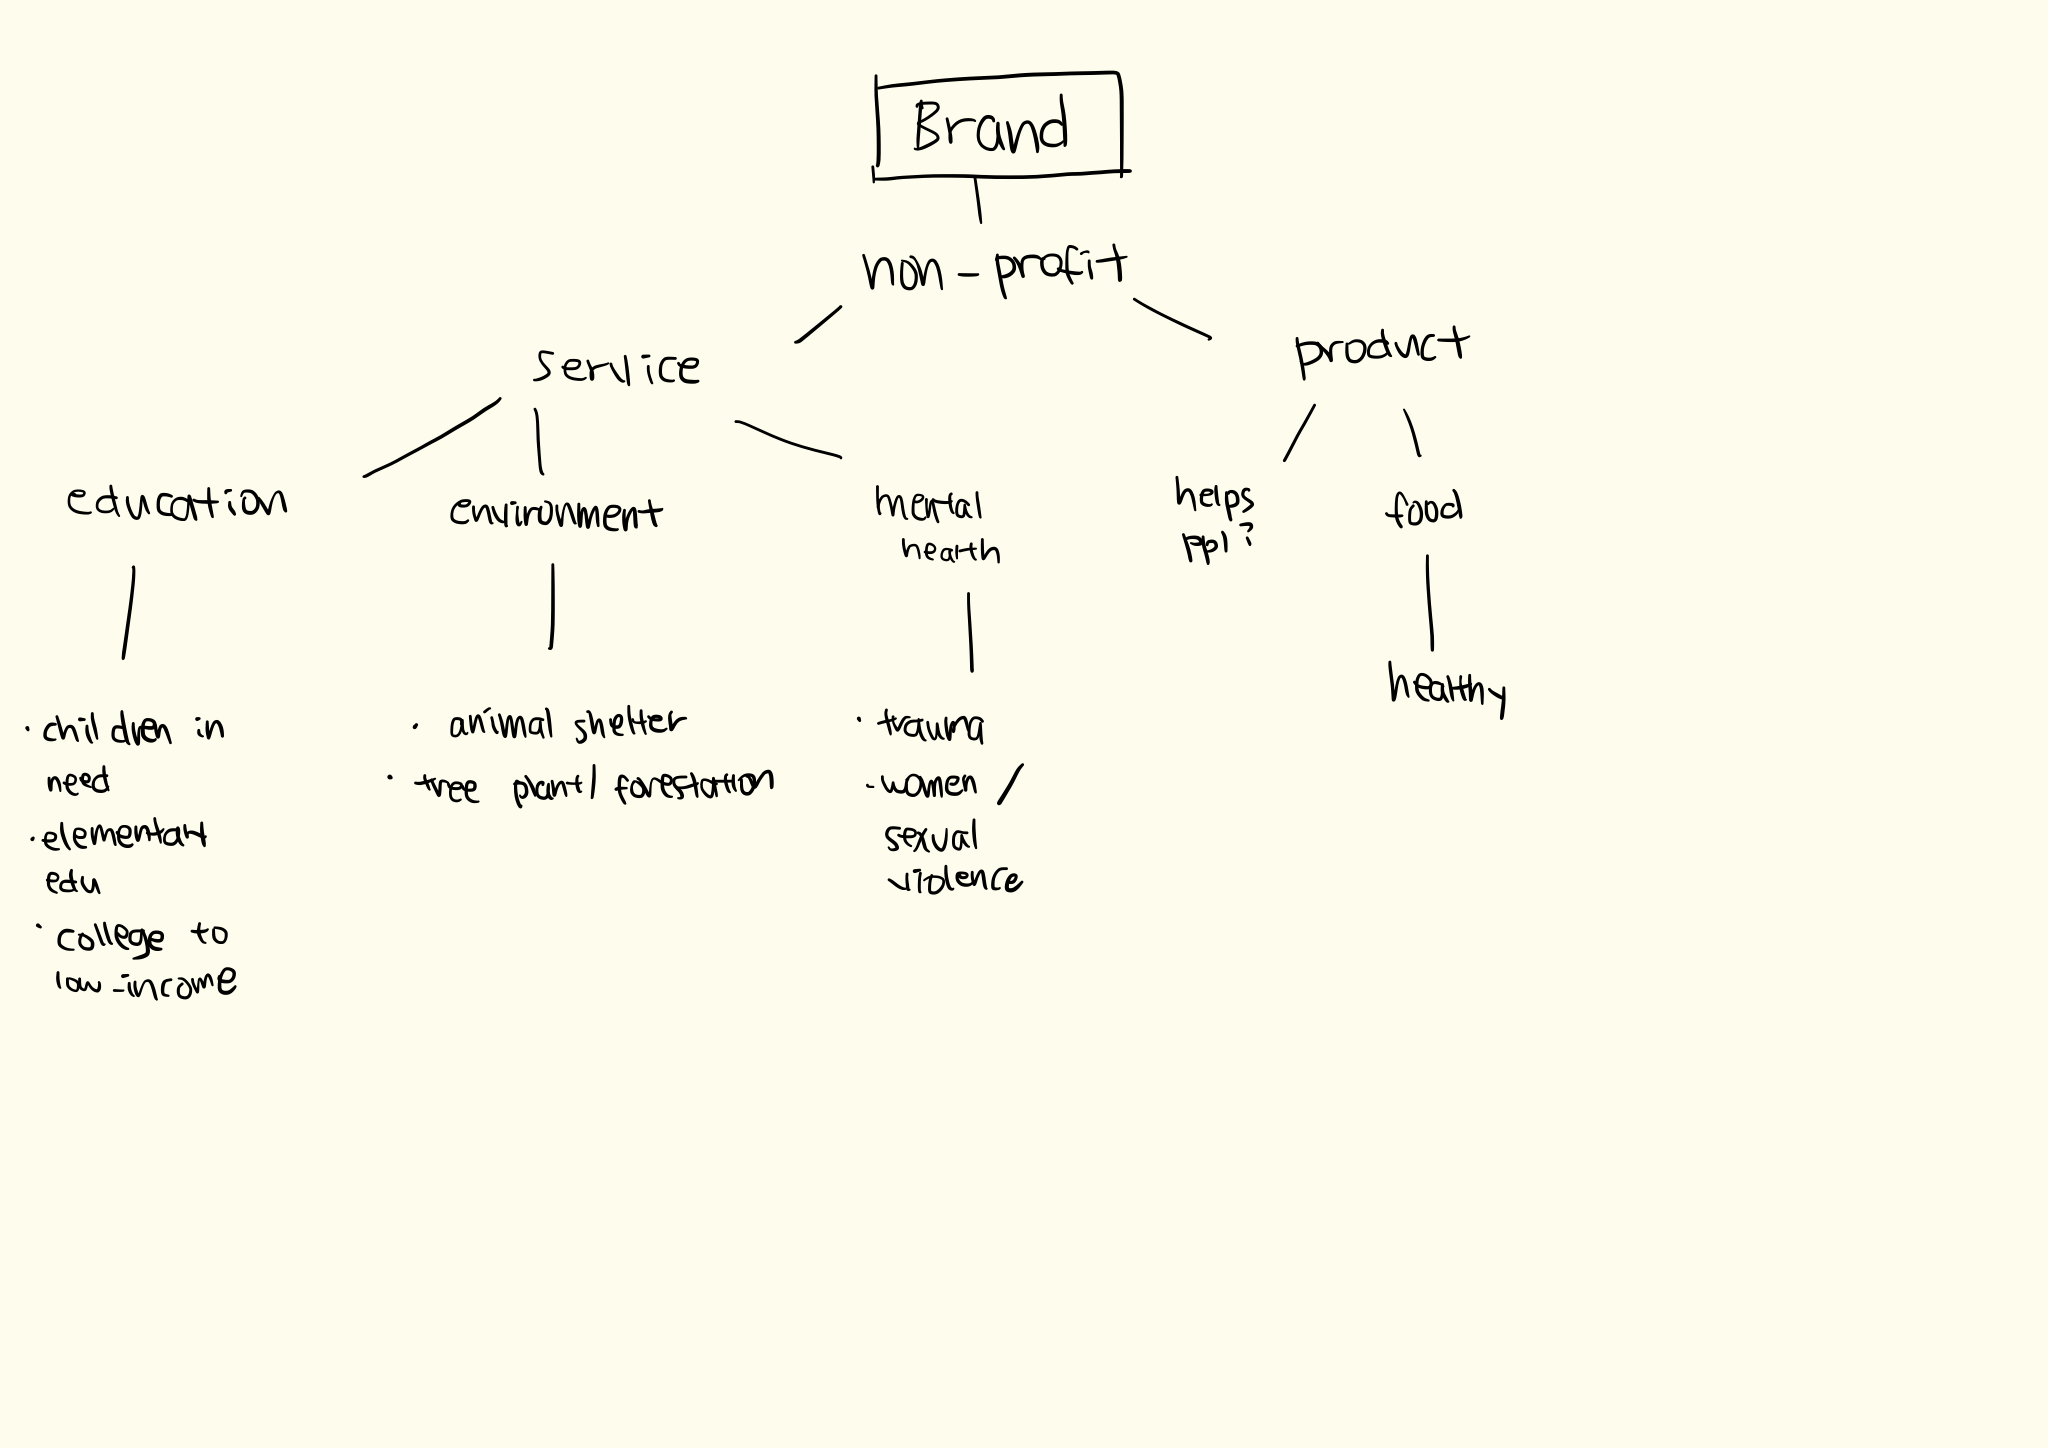 Brand
non-profit
service
product
education
environment
mental
health
helps
ppl?
food
healthy
· children in
need
· elementary
edu
· college to
low-income
· animal shelter
· tree plant/forestation
· trauma
- women /
sexual
violence